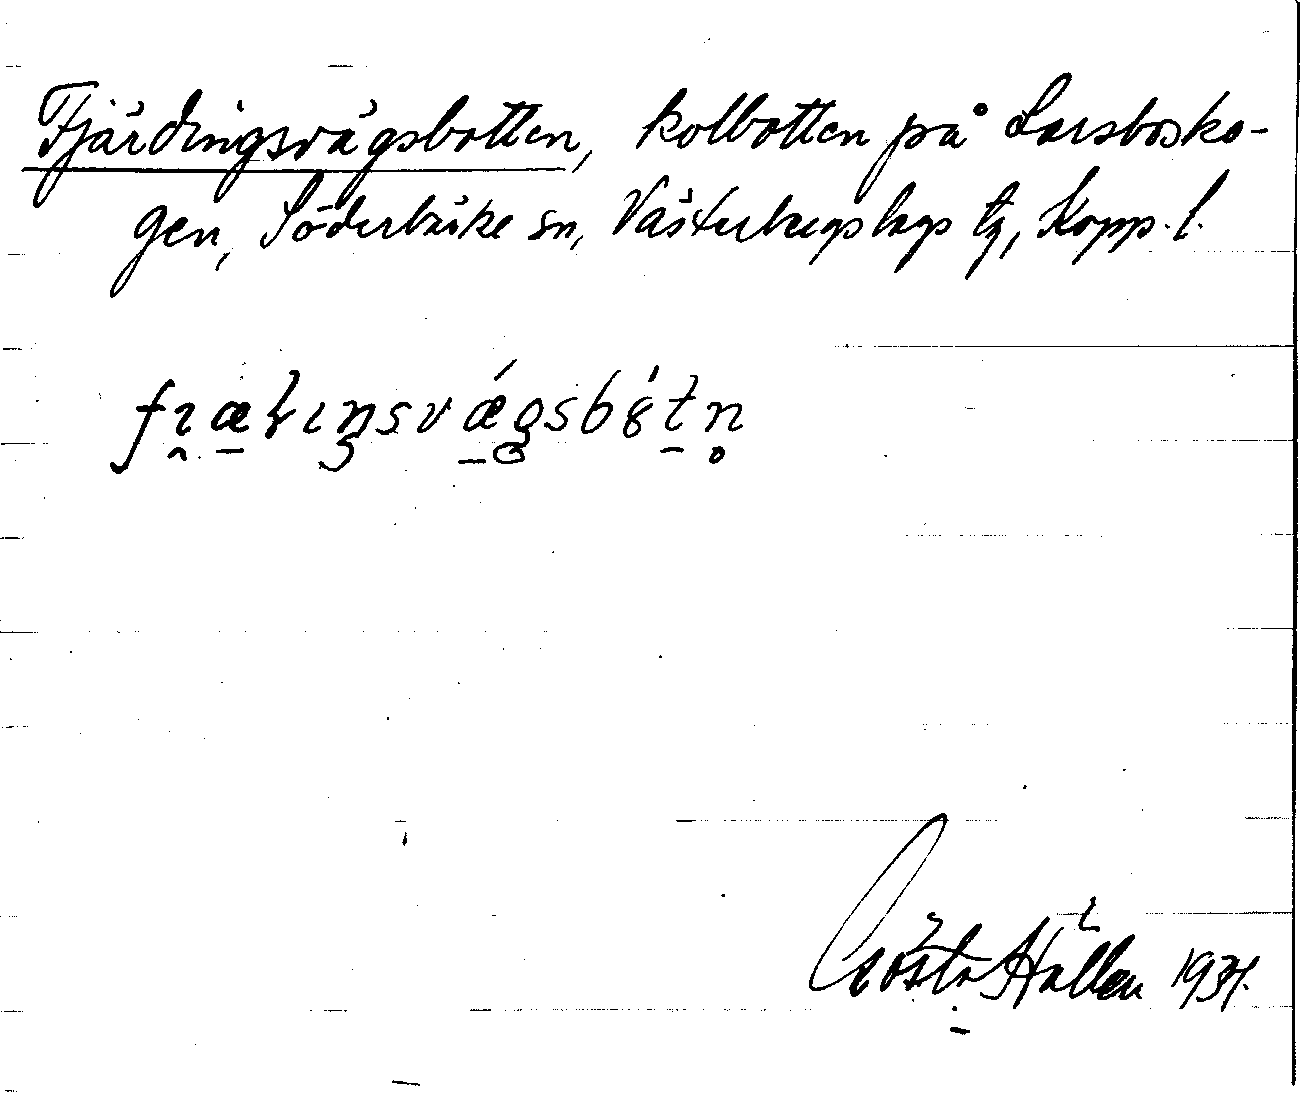 Fjärdingsvägsbotten, kolbotten på Larsbosko-
gen, Söderbärke sn, Västerbergslags tg, Kopp. l.
Gösta Hällen 1934.